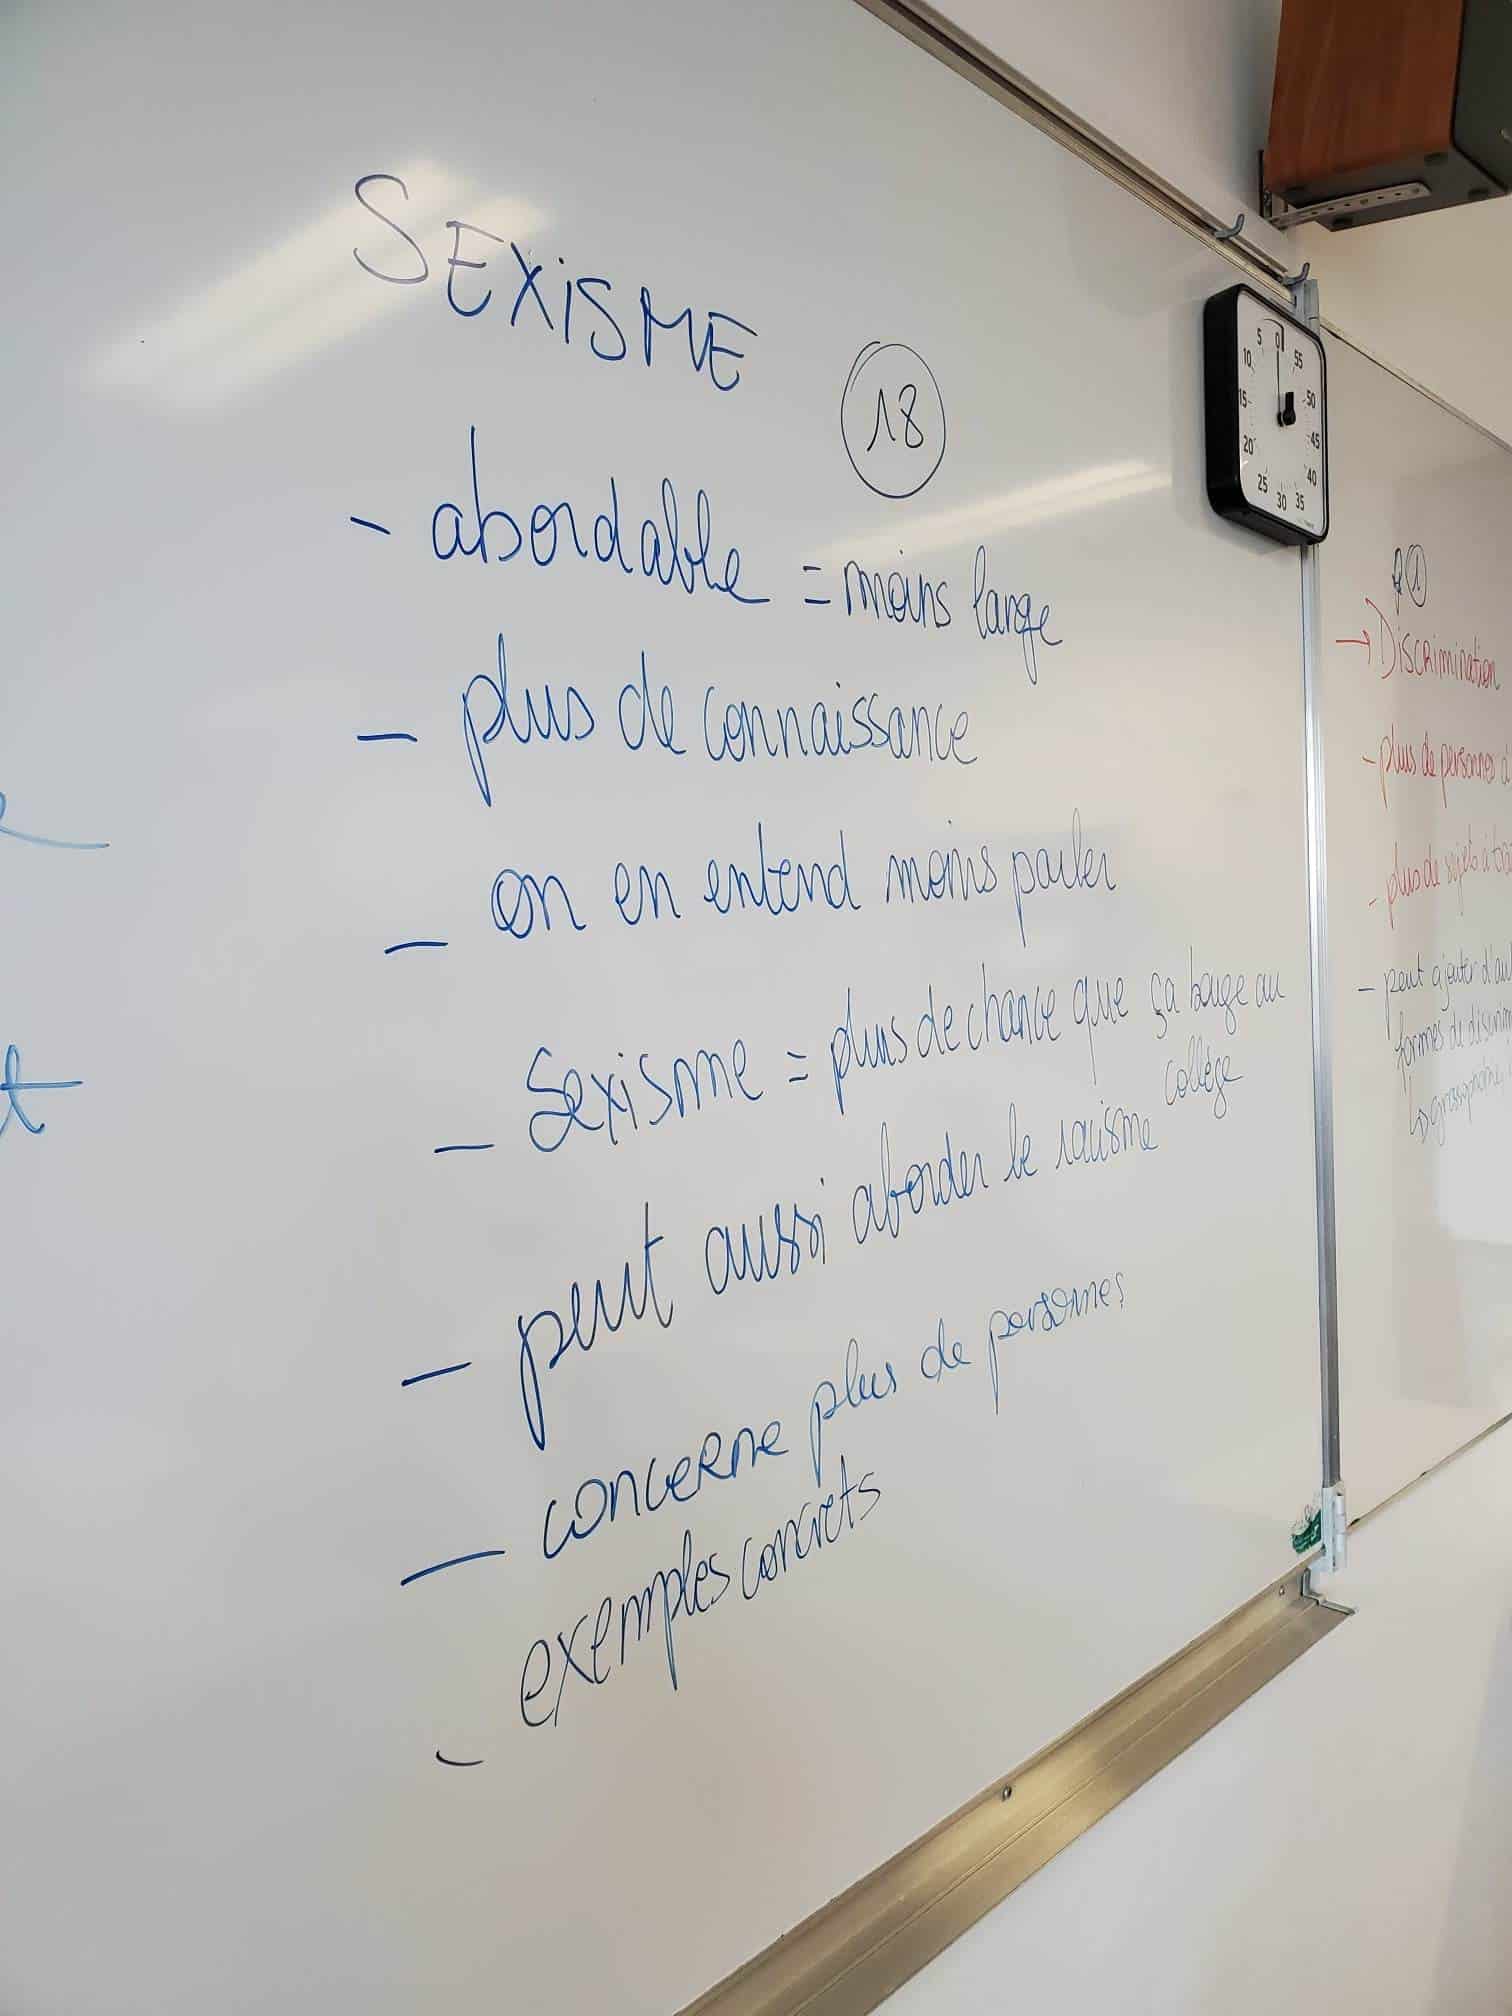 SEXISME
18
- abordable = moins large
- plus de connaissance
- on en entend moins parler
- Sexisme = plus de chance que ça bouge au
collège
- peut aussi aborder le racisme
- concerne plus de personnes
- exemples concrets
0
5
10
15
20
25
30
35
40
45
50
55
1
→ Discrimination
- plus de personnes à
- plus de sujets à
- peut ajouter
formes de